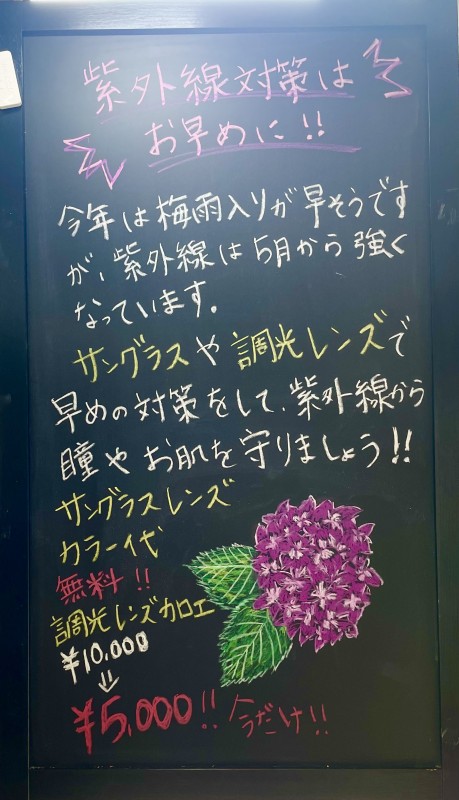 紫外線対策は
お早めに!!
今年は梅雨入りが早そうです
が、紫外線は5月から強く
なっています。
サングラスや調光レンズで
早めの対策をして、紫外線から
瞳やお肌を守りましょう!!
サングラスレンズ
カラー代
無料!!
調光レンズ加工
¥10,000
⇓
¥5,000!! 今だけ!!